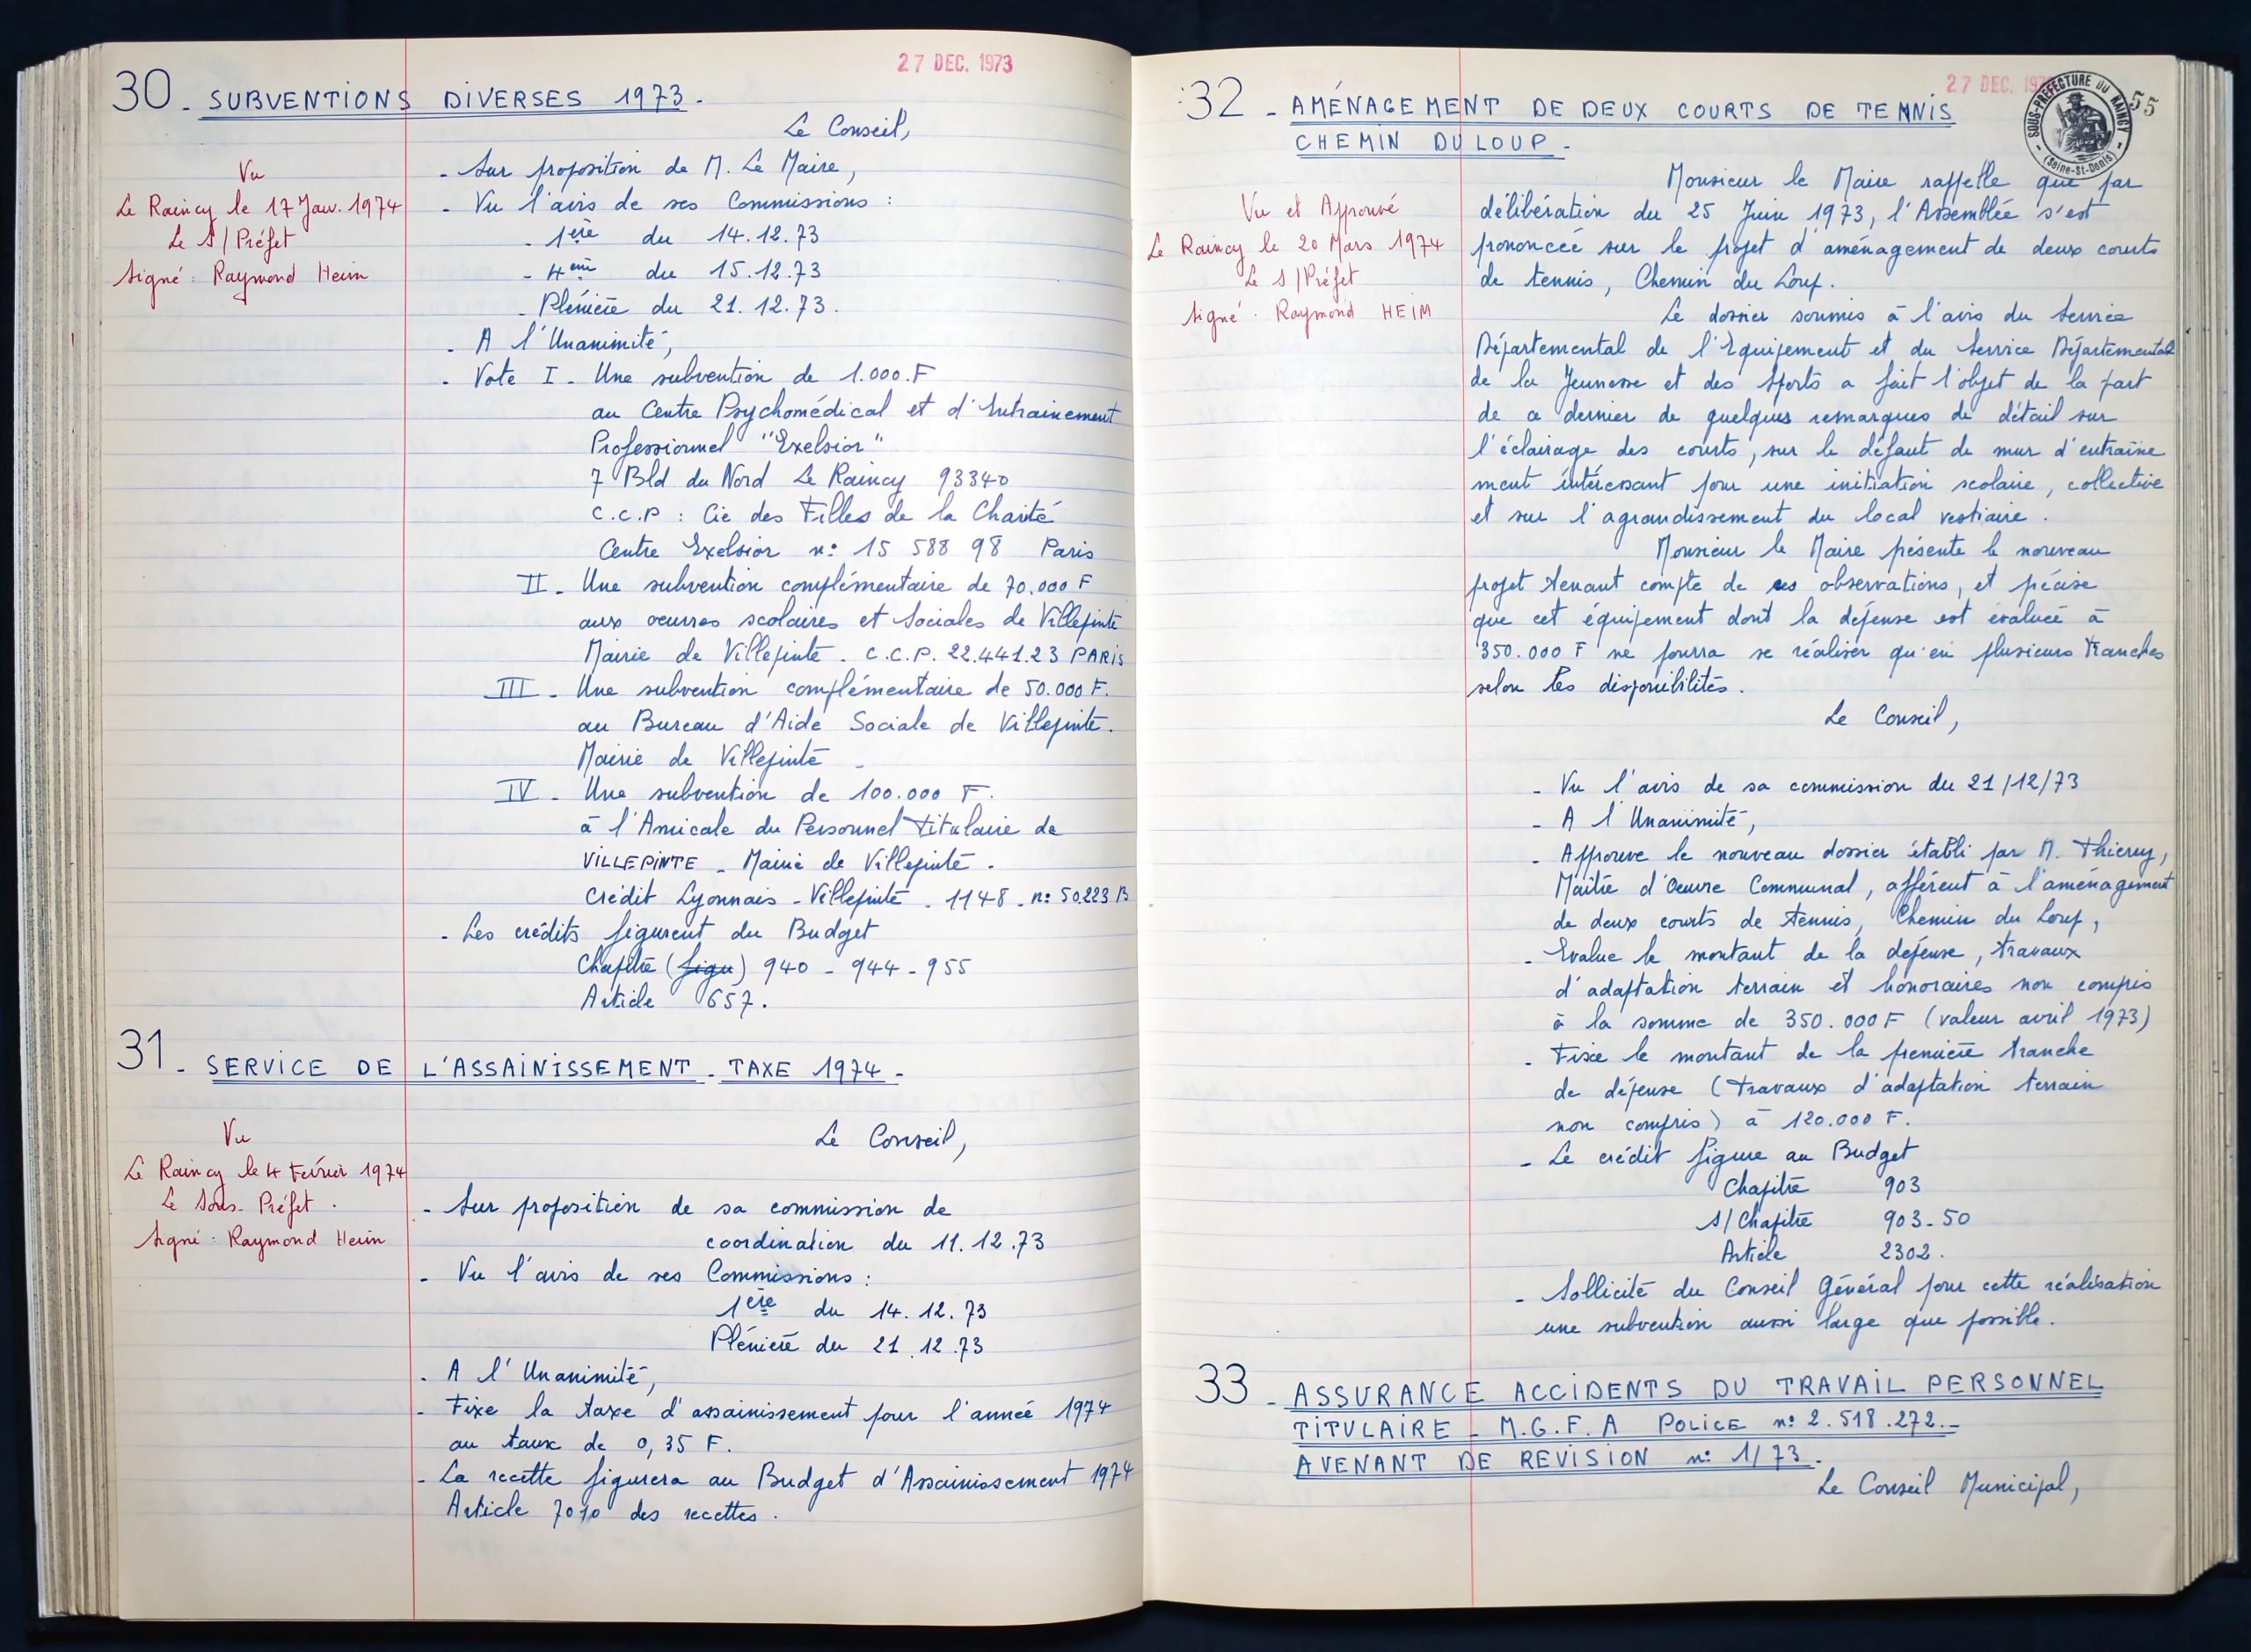 27 DEC. 1973
30 - SUBVENTIONS DIVERSES 1973 -
Le Conseil,
Vu
Le Raincy le 17 Janv. 1974
Le S/Préfet
Signé : Raymond Heim
- Sur proposition de M. Le Maire,
- Vu l'avis de ses Commissions :
- 1ère du 14.12.73
- 4ème du 15.12.73
- Plénière du 21.12.73.
- A l'Unanimité,
- Vote I - Une subvention de 1.000.F
au Centre Psychomédical et d'Entrainement
Professionnel "Exelsior"
7 Bld du Nord Le Raincy 93340
C.C.P : Cie des Filles de la Charité
Centre Exelsior n: 15 588 98 Paris
II - Une subvention complémentaire de 70.000 F
aux oeuvres scolaires et Sociales de Villepinte
Mairie de Villepinte. C.C.P. 22.441.23 PARIS
III - Une subvention complémentaire de 50.000 F.
au Bureau d'Aide Sociale de Villepinte.
Mairie de Villepinte -
IV - Une subvention de 100.000 F.
à l'Amicale du Personnel titulaire de
VILLEPINTE - Mairie de Villepinte.
Crédit Lyonnais - Villepinte - 1148 - n: 50.223 B
- Les crédits figurent du Budget
Chapitre (figu) 940 - 944 - 955
Article 657.
31 - SERVICE DE L'ASSAINISSEMENT - TAXE 1974 -
Le Conseil,
Vu
Le Raincy le 4 Février 1974
Le Sous-Préfet.
Signé : Raymond Heim
- Sur proposition de sa commission de
coordination du 11.12.73
- Vu l'avis de ses Commissions :
1ère du 14.12.73
Plénière du 21.12.73
- A l'Unanimité,
- Fixe la taxe d'assainissement pour l'année 1974
au taux de 0,35 F.
- La recette figurera au Budget d'Assainissement 1974
Article 7010 des recettes.
27 DEC. 197
SOUS-PRÉFECTURE DU RAINCY
(Seine-St-Denis)
55
32 - AMÉNAGEMENT DE DEUX COURTS DE TENNIS
CHEMIN DU LOUP -
Vu et Approuvé
Le Raincy le 20 Mars 1974
Le S/Préfet
Signé : Raymond HEIM
Monsieur le Maire rappelle que par
délibération du 25 Juin 1973, l'Assemblée s'est
prononcée sur le projet d'aménagement de deux courts
de tennis, Chemin du Loup.
Le dossier soumis à l'avis du Service
Départemental de l'Equipement et du Service Départemental
de la Jeunesse et des Sports a fait l'objet de la part
de ce dernier de quelques remarques de détail sur
l'éclairage des courts, sur le défaut de mur d'entraîne
ment intéressant pour une initiation scolaire, collective
et sur l'agrandissement du local vestiaire.
Monsieur le Maire présente le nouveau
projet tenant compte de ses observations, et précise
que cet équipement dont la dépense est évaluée à
350.000 F ne pourra se réaliser qu'en plusieurs tranches
selon les disponibilités.
Le Conseil,
- Vu l'avis de sa commission du 21/12/73
- A l'Unanimité,
- Approuve le nouveau dossier établi par M. Thierry,
Maître d'Oeuvre Communal, afférent à l'aménagement
de deux courts de tennis, Chemin du Loup,
- Evalue le montant de la dépense, travaux
d'adaptation terrain et honoraires non compris
à la somme de 350.000 F (valeur avril 1973)
- Fixe le montant de la première tranche
de dépense (travaux d'adaptation terrain
non compris) à 120.000 F.
- Le crédit figure au Budget
Chapitre 903
S/Chapitre 903-50
Article 2302.
- Sollicite du Conseil Général pour cette réalisation
une subvention aussi large que possible.
33 - ASSURANCE ACCIDENTS DU TRAVAIL PERSONNEL
TITULAIRE - M.G.F.A POLICE n: 2.518.272.-
AVENANT DE REVISION n: 1/73.
Le Conseil Municipal,